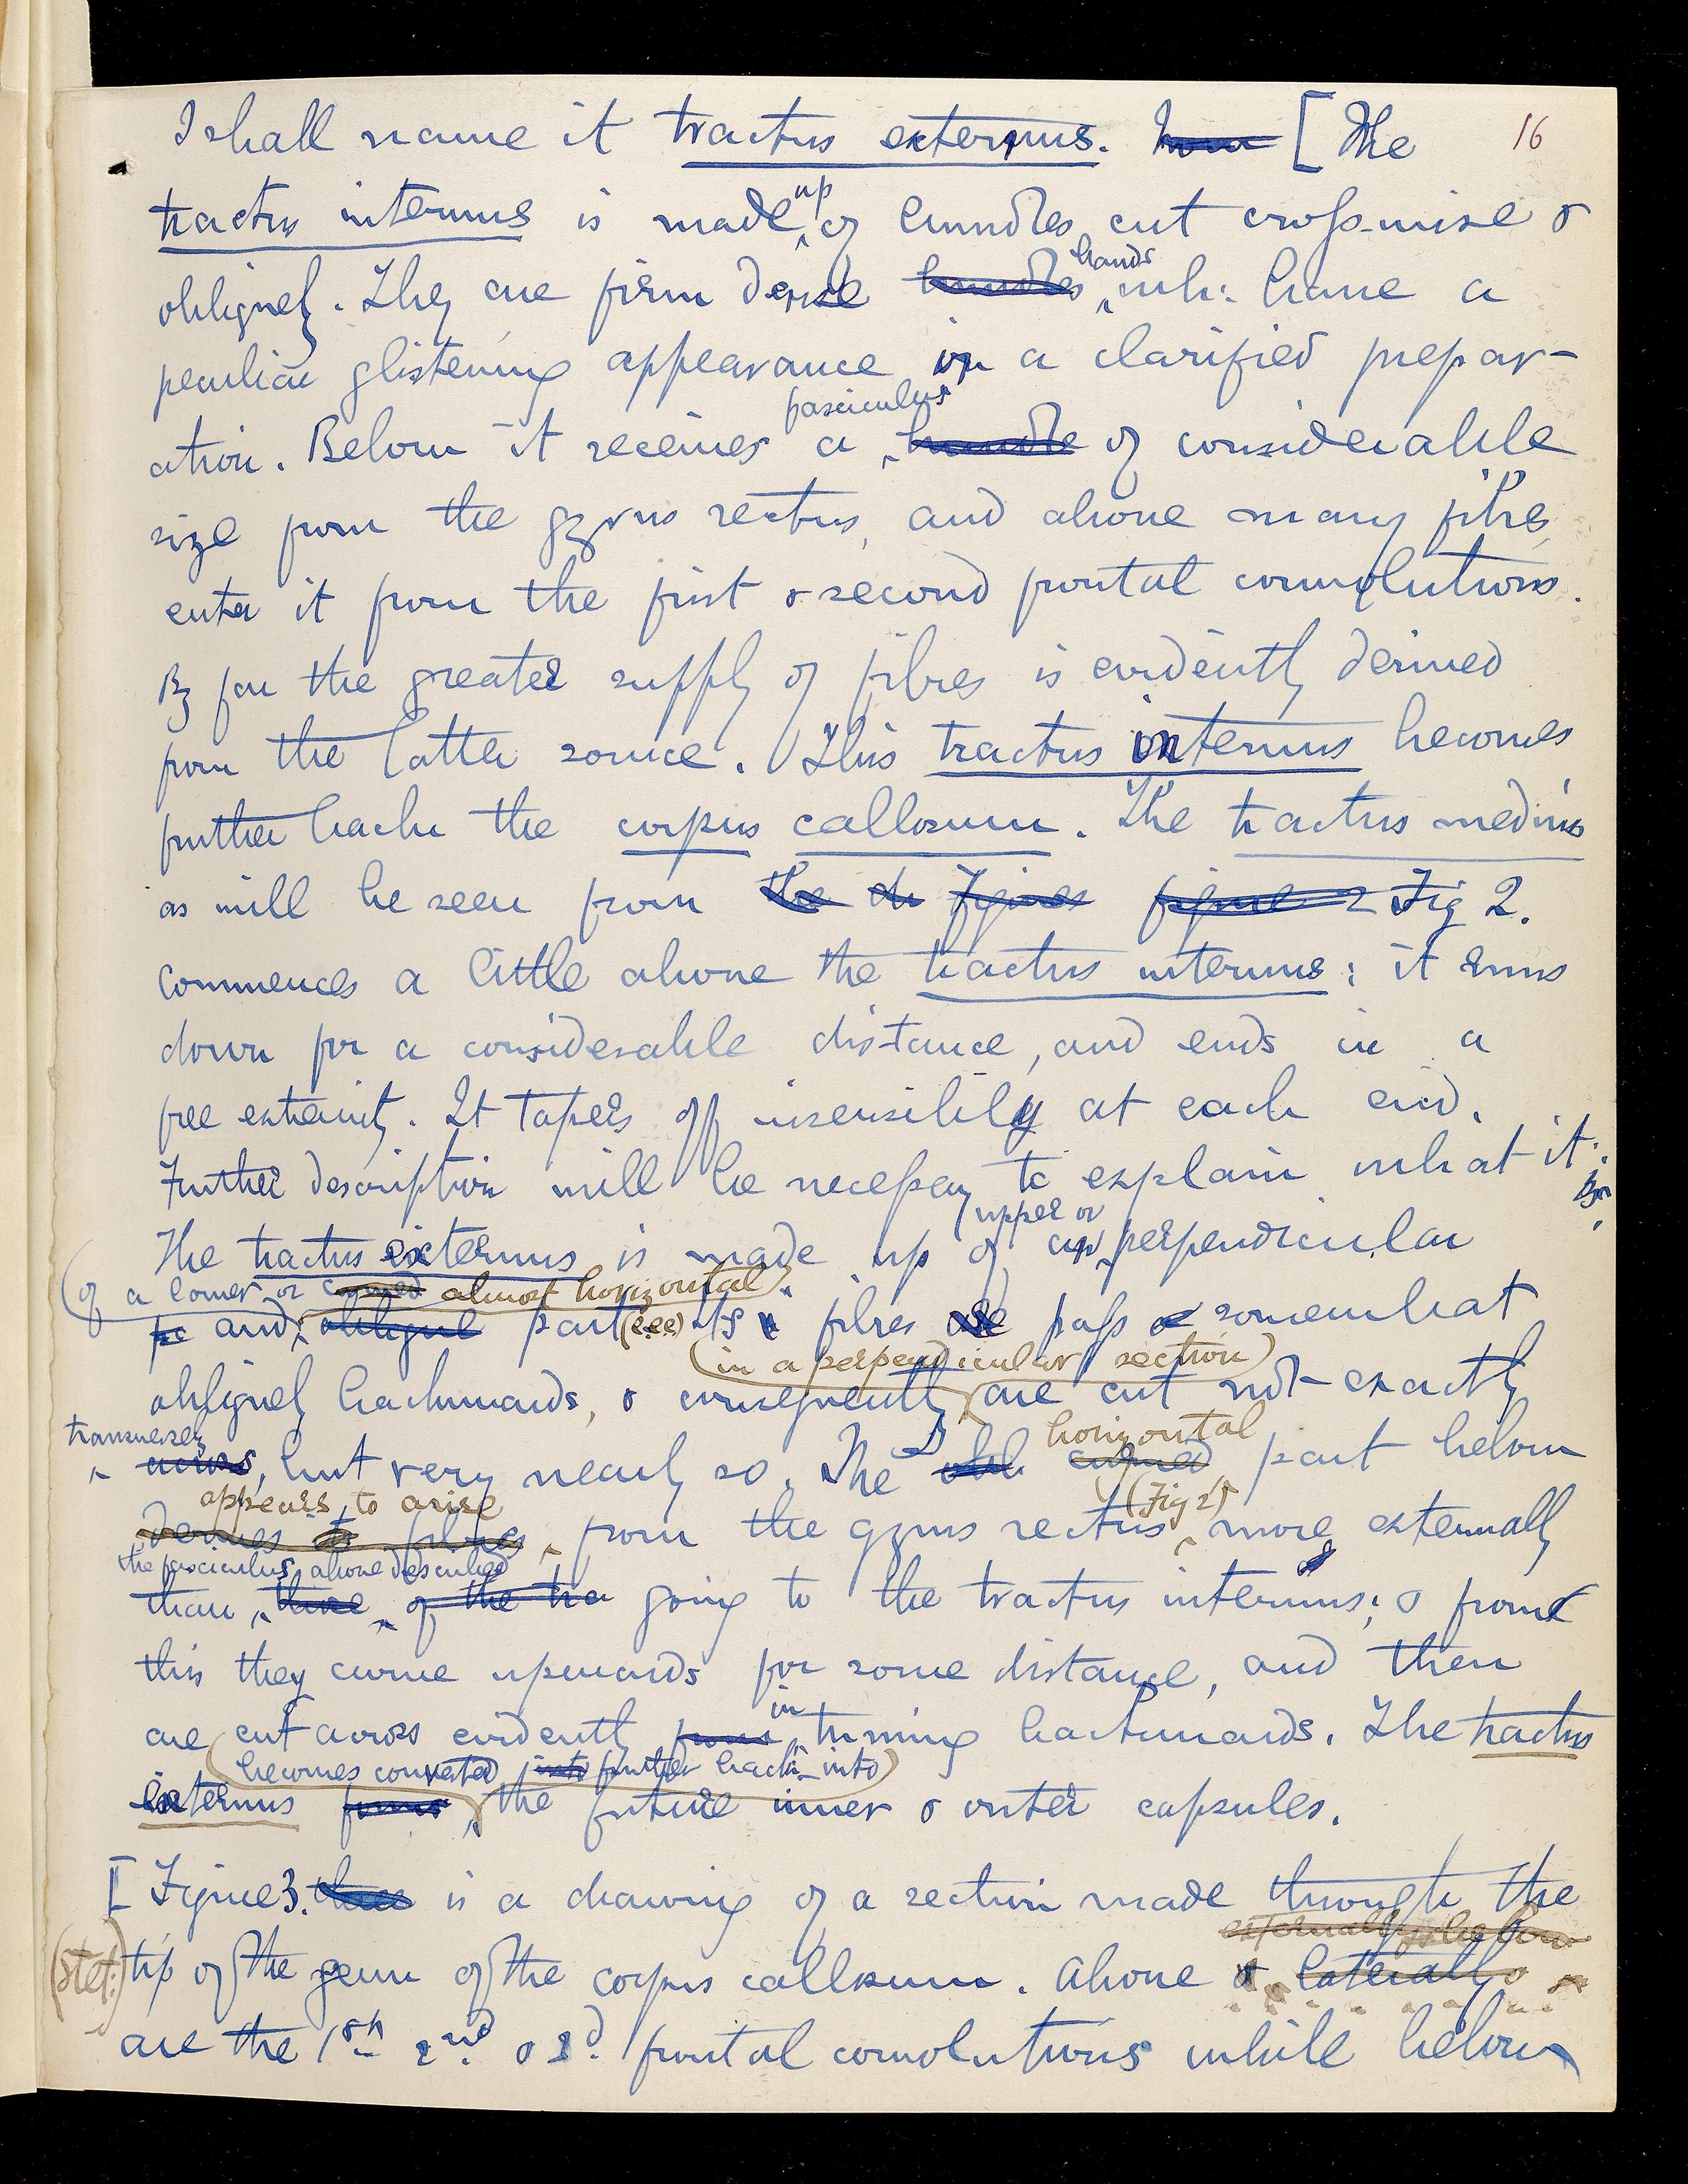 16
I shall name it tractus externus. [The
tractus internus is made up of bundles cut crosswise &
obliquely. They are firm dense bundles bands wh: have a
peculiar glistening appearance in a clarified prepar-
ation. Below it receives a fasciculus bundle of considerable
size from the gyrus rectus, and above many fibres
enter it from the first & second frontal convolutions.
By far the greater supply of fibres is evidently derived
from the latter source. This tractus internus becomes
further back the corpus callosum. The tractus medius
as will be seen from the figures figure 2 Fig 2.
commences a little above the tractus internus: it runs
down for a considerable distance, and ends in a
free extremity. It tapers off insensibly at each end.
Further description will be necessary to explain what it is.
The tractus externus is made up of an upper or perpendicular
(of a lower or curved almost horizontal)
and oblique part (eee) Its fibres are pass somewhat
(in a perpendicular section)
obliquely backwards, & consequently are cut not exactly
transversely
across, but very nearly so. The curved horizontal part below
appears to arise
derives its fibres from the gyrus rectus (Fig 2) more externally
the fasciculus above described
than those of the tra going to the tractus internus; & from
this they curve upwards for some distance, and then
are cut across evidently from in turning backwards. The tractus
(becomes converted into further back into)
externus forms the future inner & outer capsules.
[Figure 3. is a drawing of a section made through the
externally & below
(stet:) tip of the genu of the corpus callosum. Above & laterally
are the 1st 2nd & 3d. frontal convolutions while below